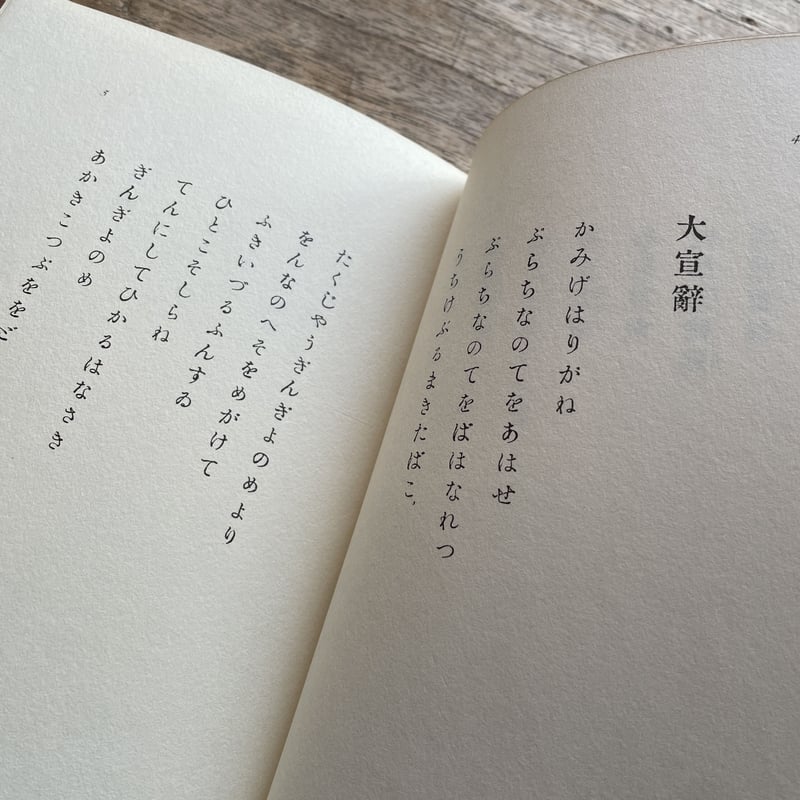 4
大宣辭
かみげはりがね
ぷらちなのてをあはせ
ぷらちなのてをばはなれつ
うちけぶるまきたばこ。
5
たくじやうぎんぎよのめより
をんなのへそをめがけて
ふきいづるふんすゐ
ひとこそしらね
てんにしてひかるはなさき
ぎんぎよのめ
あかきこつぷををど